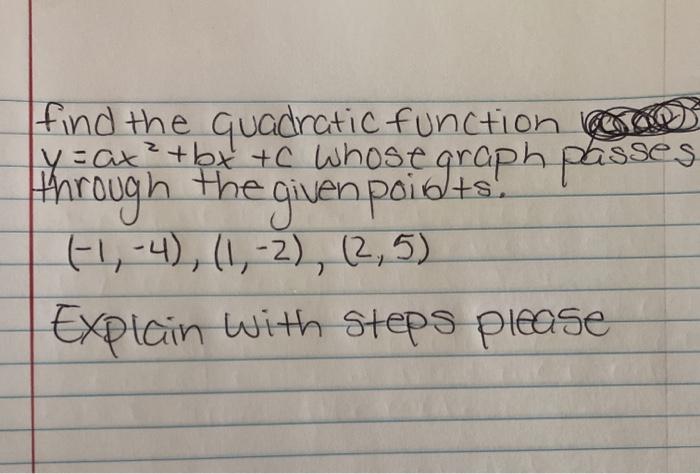 find the quadratic function
y = ax² + bx + c whose graph passes
through the given points.
(-1, -4), (1, -2), (2, 5)
Explain with steps please